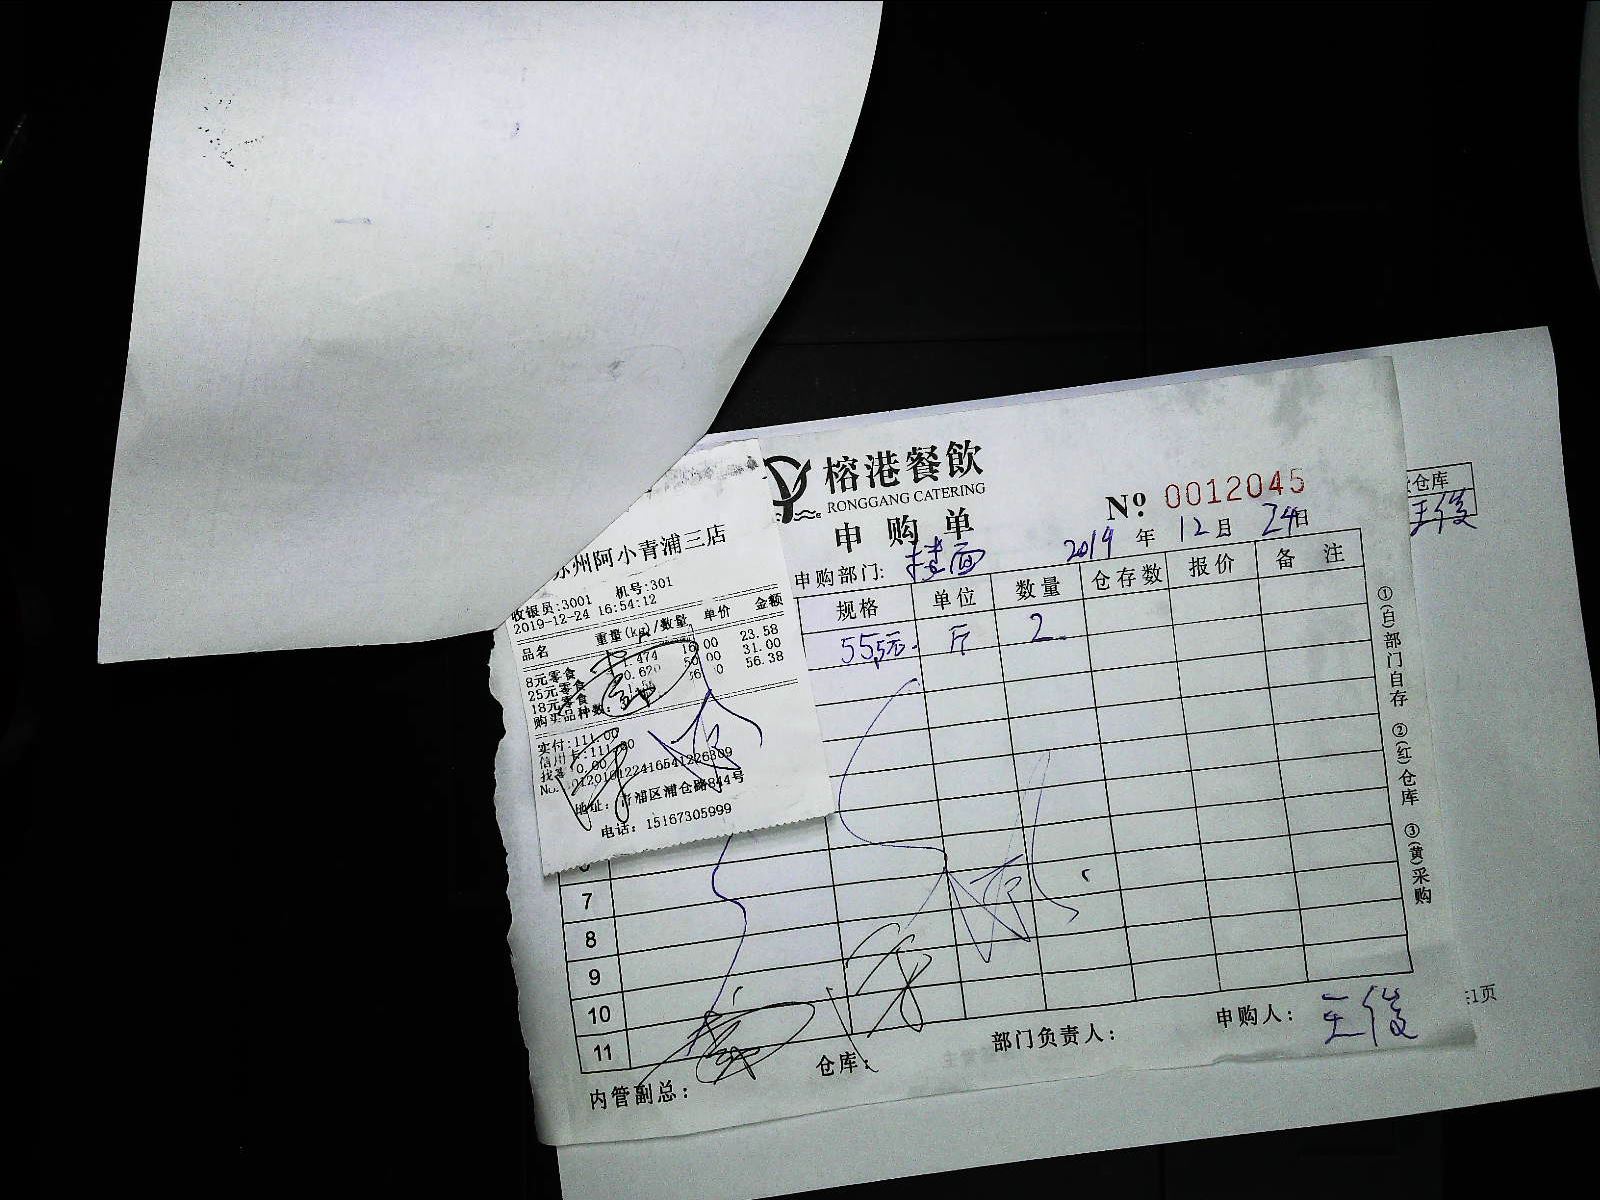 榕港餐飲
RONGGANG CATERING
申购单
No. 0012045
2019 年 12 月 24 日
申购部门:
规格 单位 数量 仓存数 报价 备注
55.5元. 斤 2
7
8
9
10
11
内管副总:
仓库:
部门负责人:
申购人: 王俊
①(白)部门自存 ②(红)仓库 ③(黄)采购
仓库
王俊
1页
州阿小青浦三店
收银员:3001 机号:301
2019-12-24 16:54:12
品名 重量(kg)/数量 单价 金额
8元零食 1.474 16.00 23.58
25元零食 0.620 50.00 31.00
18元零食 56.38
购买品种数:
实付:111.00
信用卡:111.00
0.00
No.
地址: 青浦区浦仓路844号
电话: 15167305999